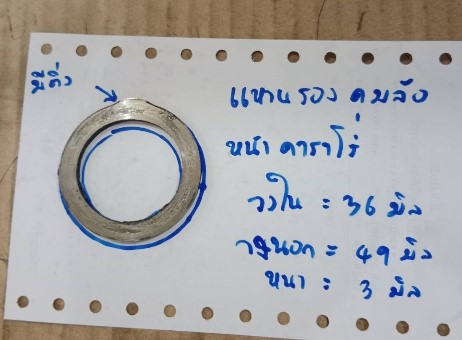 มีติ่ง
แหวนรอง ดุมล้อ
หน้า คาราโร่
วงใน = 36 มิล
วงนอก = 49 มิล
หนา = 3 มิล